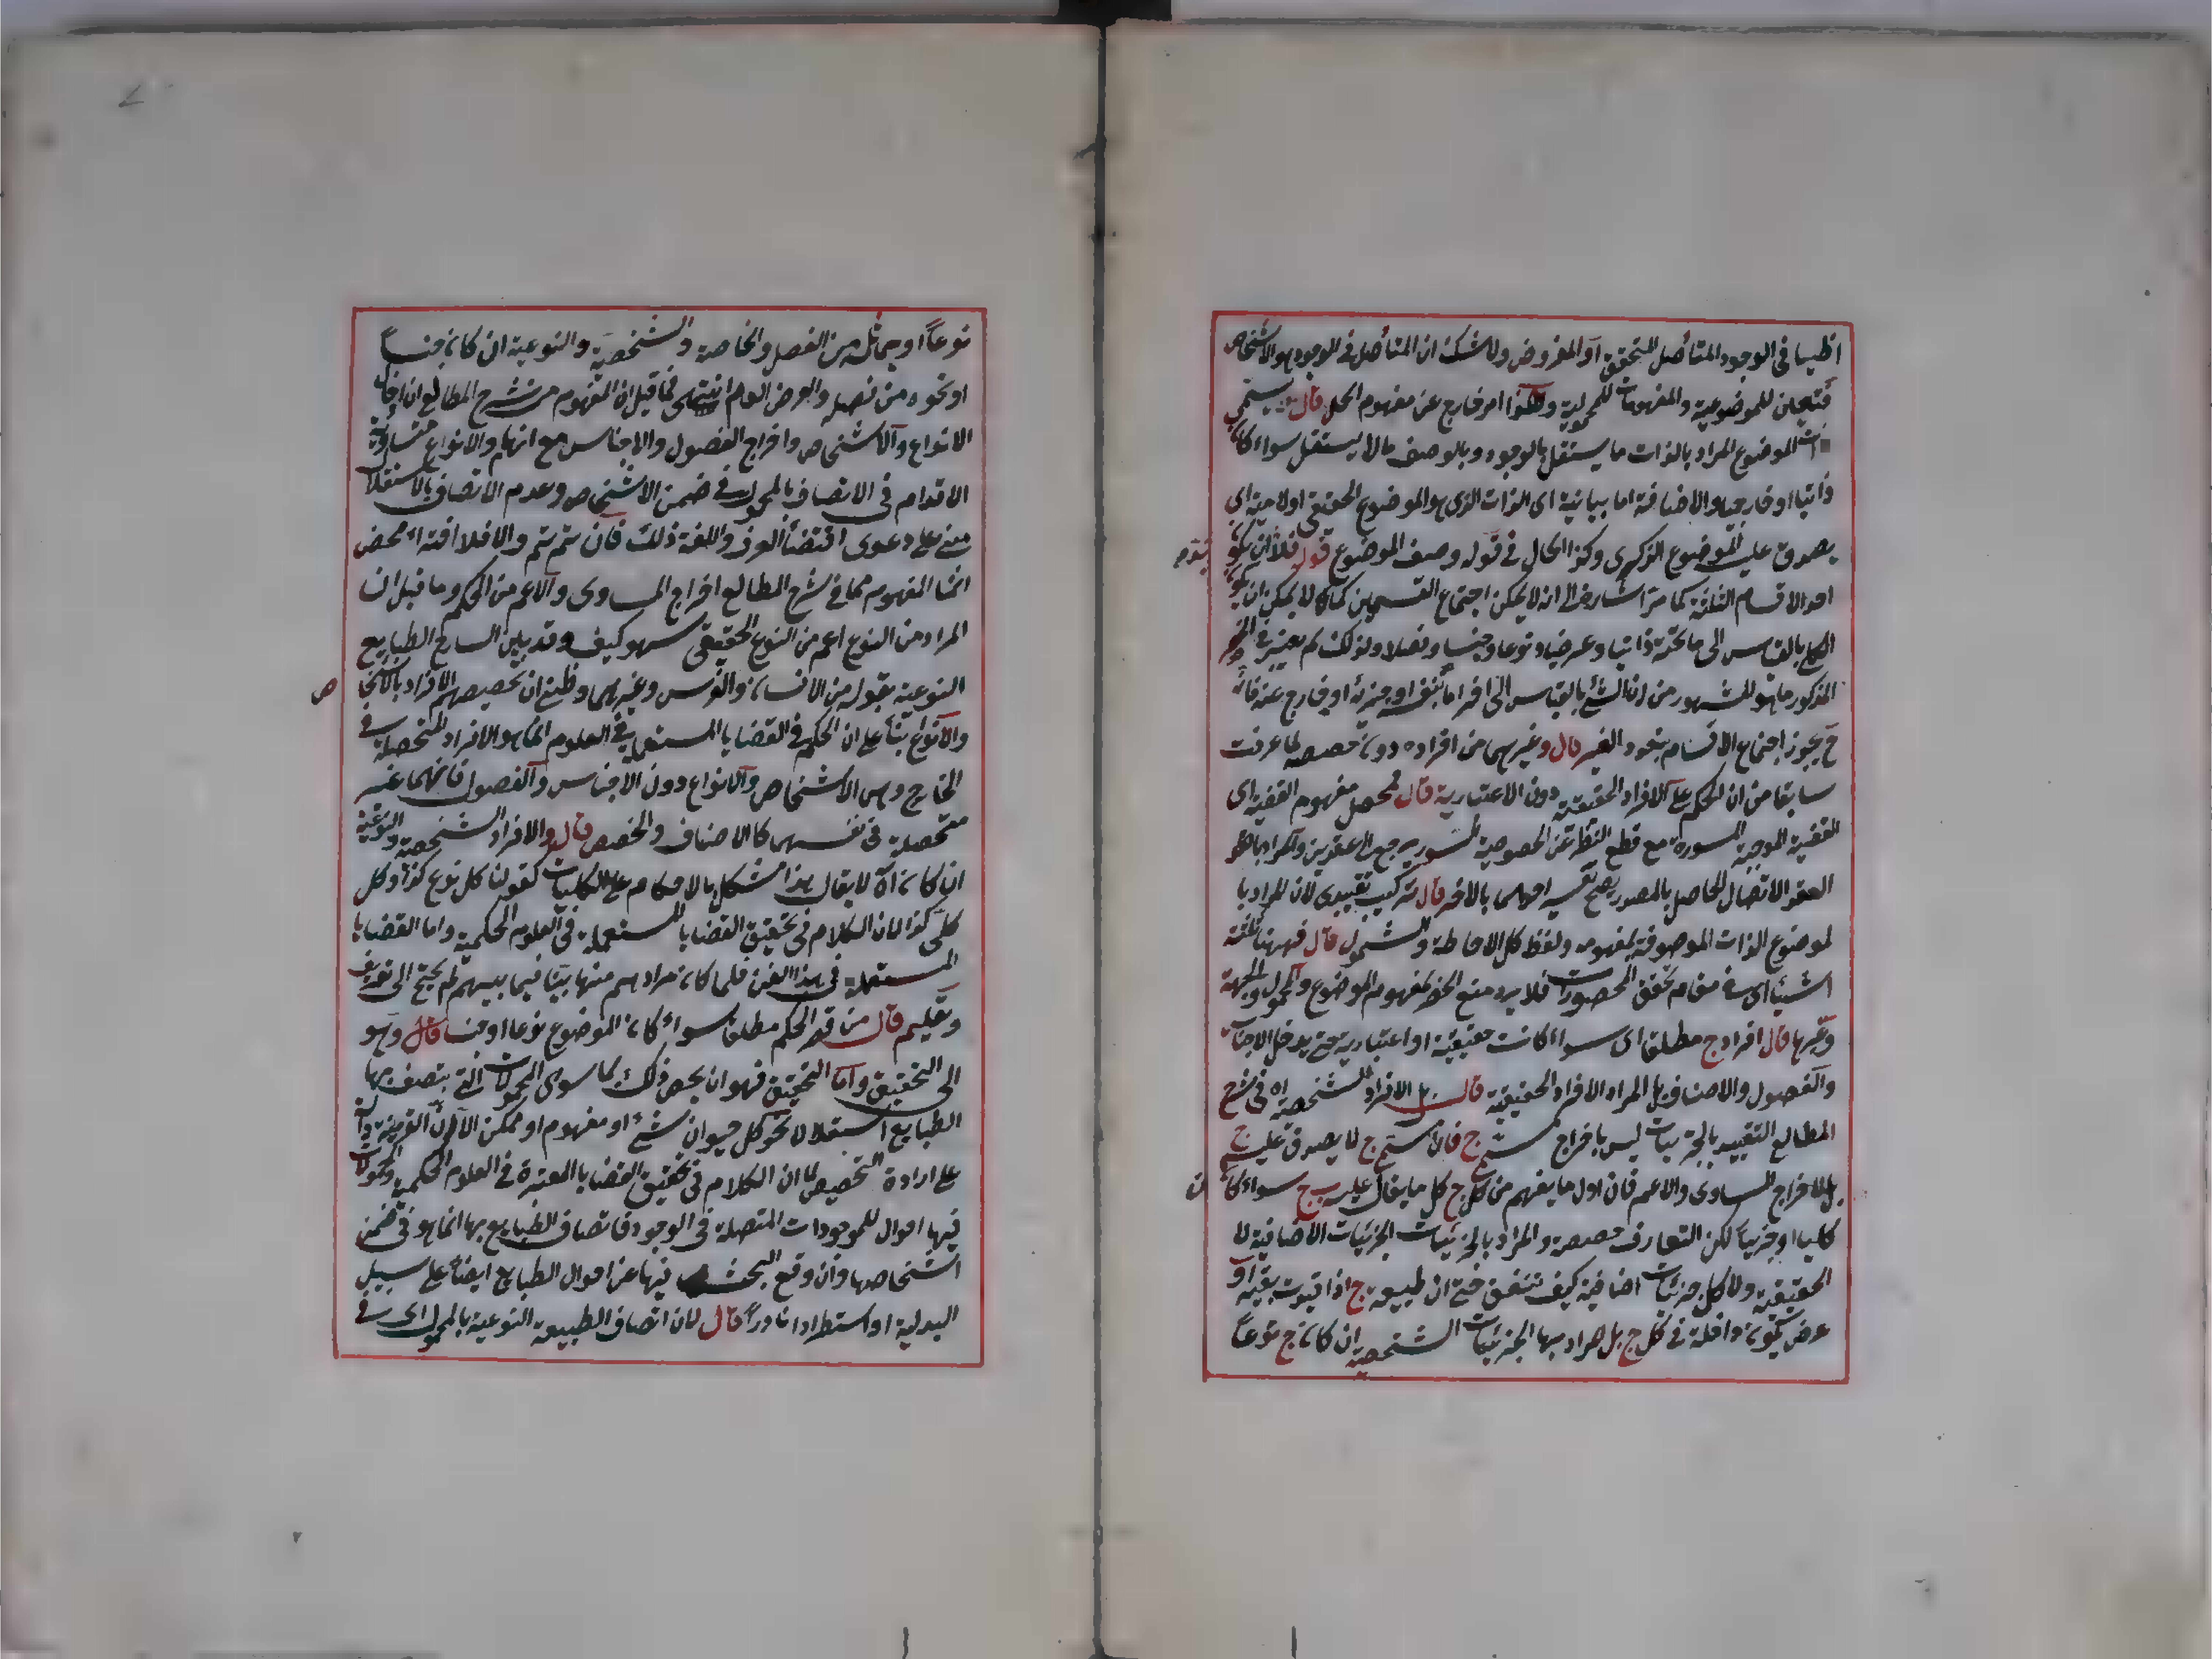 في الوجود المتأصل المتحقق او المفروض ولا شك ان المتأصل في الوجود هو الاشخاص
فتعين للموضوعية والمفهومات للمحمولية وهكذا امر خارج عن مفهوم الحمل قال يسمى
ذات الموضوع المراد بالذات ما يستقل بالوجود وبالوصف ما لا يستقل سواء كان
ذاتيا او خارجيا والاضافة اما بيانية اى الذات الذى هو الموضوع الحقيقي او لامية اى
يصدق عليه الموضوع الذكرى وكذا الحال في قوله وصف الموضوع
احد الاقسام الثلثة كما مر اشارة الى انه لا يمكن اجتماع القسمين كما لا يمكن ان يكون
بالقياس الى ما تحته ذاتيا وعرضيا ونوعا وجنسا وفصلا ولذلك لم يعتبر في
المذكور ما هو المشهور من ان الشئ بالقياس الى اخر اما نفسه او جزئه او خارج عنه فانه
ح يجوز اجتماع الاقسام قال وغيرهما من افراده دون حصصه لما عرفت
سابقا من ان الحكم على الافراد الحقيقية دون الاعتبارية قال فمحصل مفهوم القضية اى
القضية الموجبة المسورة مع قطع النظر عن الخصوصية السور يرجع الى عقدين والمراد
العقد الاتصال الحاصل بالمصدر قال تركيب تقييدى لان المراد با
لموضوع الذات الموصوفة بمفهومه ولفظ كل الاحاطة والشمول قال فههنا ثلثة
اشياء اى في مقام تحقق المحصورات فلا يرد منع الحصر لمفهوم الموضوع والمحمول والجهة
وغيرها قال افراد ج مطلقا اى سواء كانت حقيقية او اعتبارية حتى يدخل الاجناس
والفصول والاصناف بل المراد الافراد الحقيقية قال بل الافراد الشخصية اه في شرح
المطالع التقييد بالجزئيات ليس باخراج مسمى ج فان مسمى ج لا يصدق عليه ج
بل لاخراج المساوى والاعم فان اول ما يفهم من كل ج كل ما يقال عليه ج سواء كان
كليا او جزئيا لكن التعارف خصصه والمراد بالجزئيات الجزئيات الاضافية لا
الحقيقية ولا كل جزئيات اضافية كيف تتفق حتى ان طبيعة ج اذا قيدت بقيد او
عرض يكون داخلة في كل ج بل المراد بها الجزئيات الشخصية ان كان ج نوعا
نوعا او ما يماثله من الفصل والخاصة والشخصية والنوعية ان كان جنسا
او نحوه من فصله والعرض العام انتهى فما قيل ان المفهوم من شرح المطالع ان ادخال
الانواع والاشخاص واخراج الفصول والاجناس مع انها والانواع متساوية
الاقدام في الاتصاف بالمحمول في ضمن الاشخاص وعدم الاتصاف بالاستقلال
مبني على دعوى اقتضاء العرف واللغة ذلك فان تم تم والا فلا افتراء محض
انما المفهوم مما في شرح المطالع اخراج المساوى والاعم من الحكم وما قيل ان
المراد من النوع اعم من النوع الحقيقي سهو كيف وقد بين الشارح الطبايع
النوعية بقوله من الانسان والفرس وغيرهما وظني ان تخصيصهم الافراد بالاشخاص
والانواع بناء على ان الحكم في القضايا المستعملة في العلوم انما هو الافراد المتحصلة في
الخارج وهي الاشخاص والانواع دون الاجناس والفصول فانهما غير
متحصلة في نفسهما كالاصناف والحصص قال والافراد الشخصية والنوعية
ان كان اه لا يقال هذا مشكل بالاحكام على الكليات كقولنا كل نوع كذا وكل
كلى كذا لان الكلام في تحقيق القضايا المستعملة في العلوم الحكمية واما القضايا
المستعملة في هذا الفن فلما كان مرادهم منها بينا فيما بينهم لم يحتج الى تعريف
وتعليم قال من قصر الحكم مطلقا سواء كان الموضوع نوعا او جنسا قال وهو
الى التحقيق واما التحقيق فهو ان يخص ذلك بما سوى المحمولات التي يتصف بها
الطبايع استقلالا نحو كل حيوان شئ او مفهوم او ممكن
على ارادة التخصيص لما ان الكلام في تحقيق القضايا المعتبرة في العلوم الحكمية والمحمولات
فيها احوال للموجودات المتصلة في الوجود فاتصاف الطبايع بها انما هو في ضمن
اشخاصها وان وقع البحث فيها عن احوال الطبايع ايضا على سبيل
البدلية او استطرادا نادرا قال لان اتصاف الطبيعة النوعية بالمحمول اى في